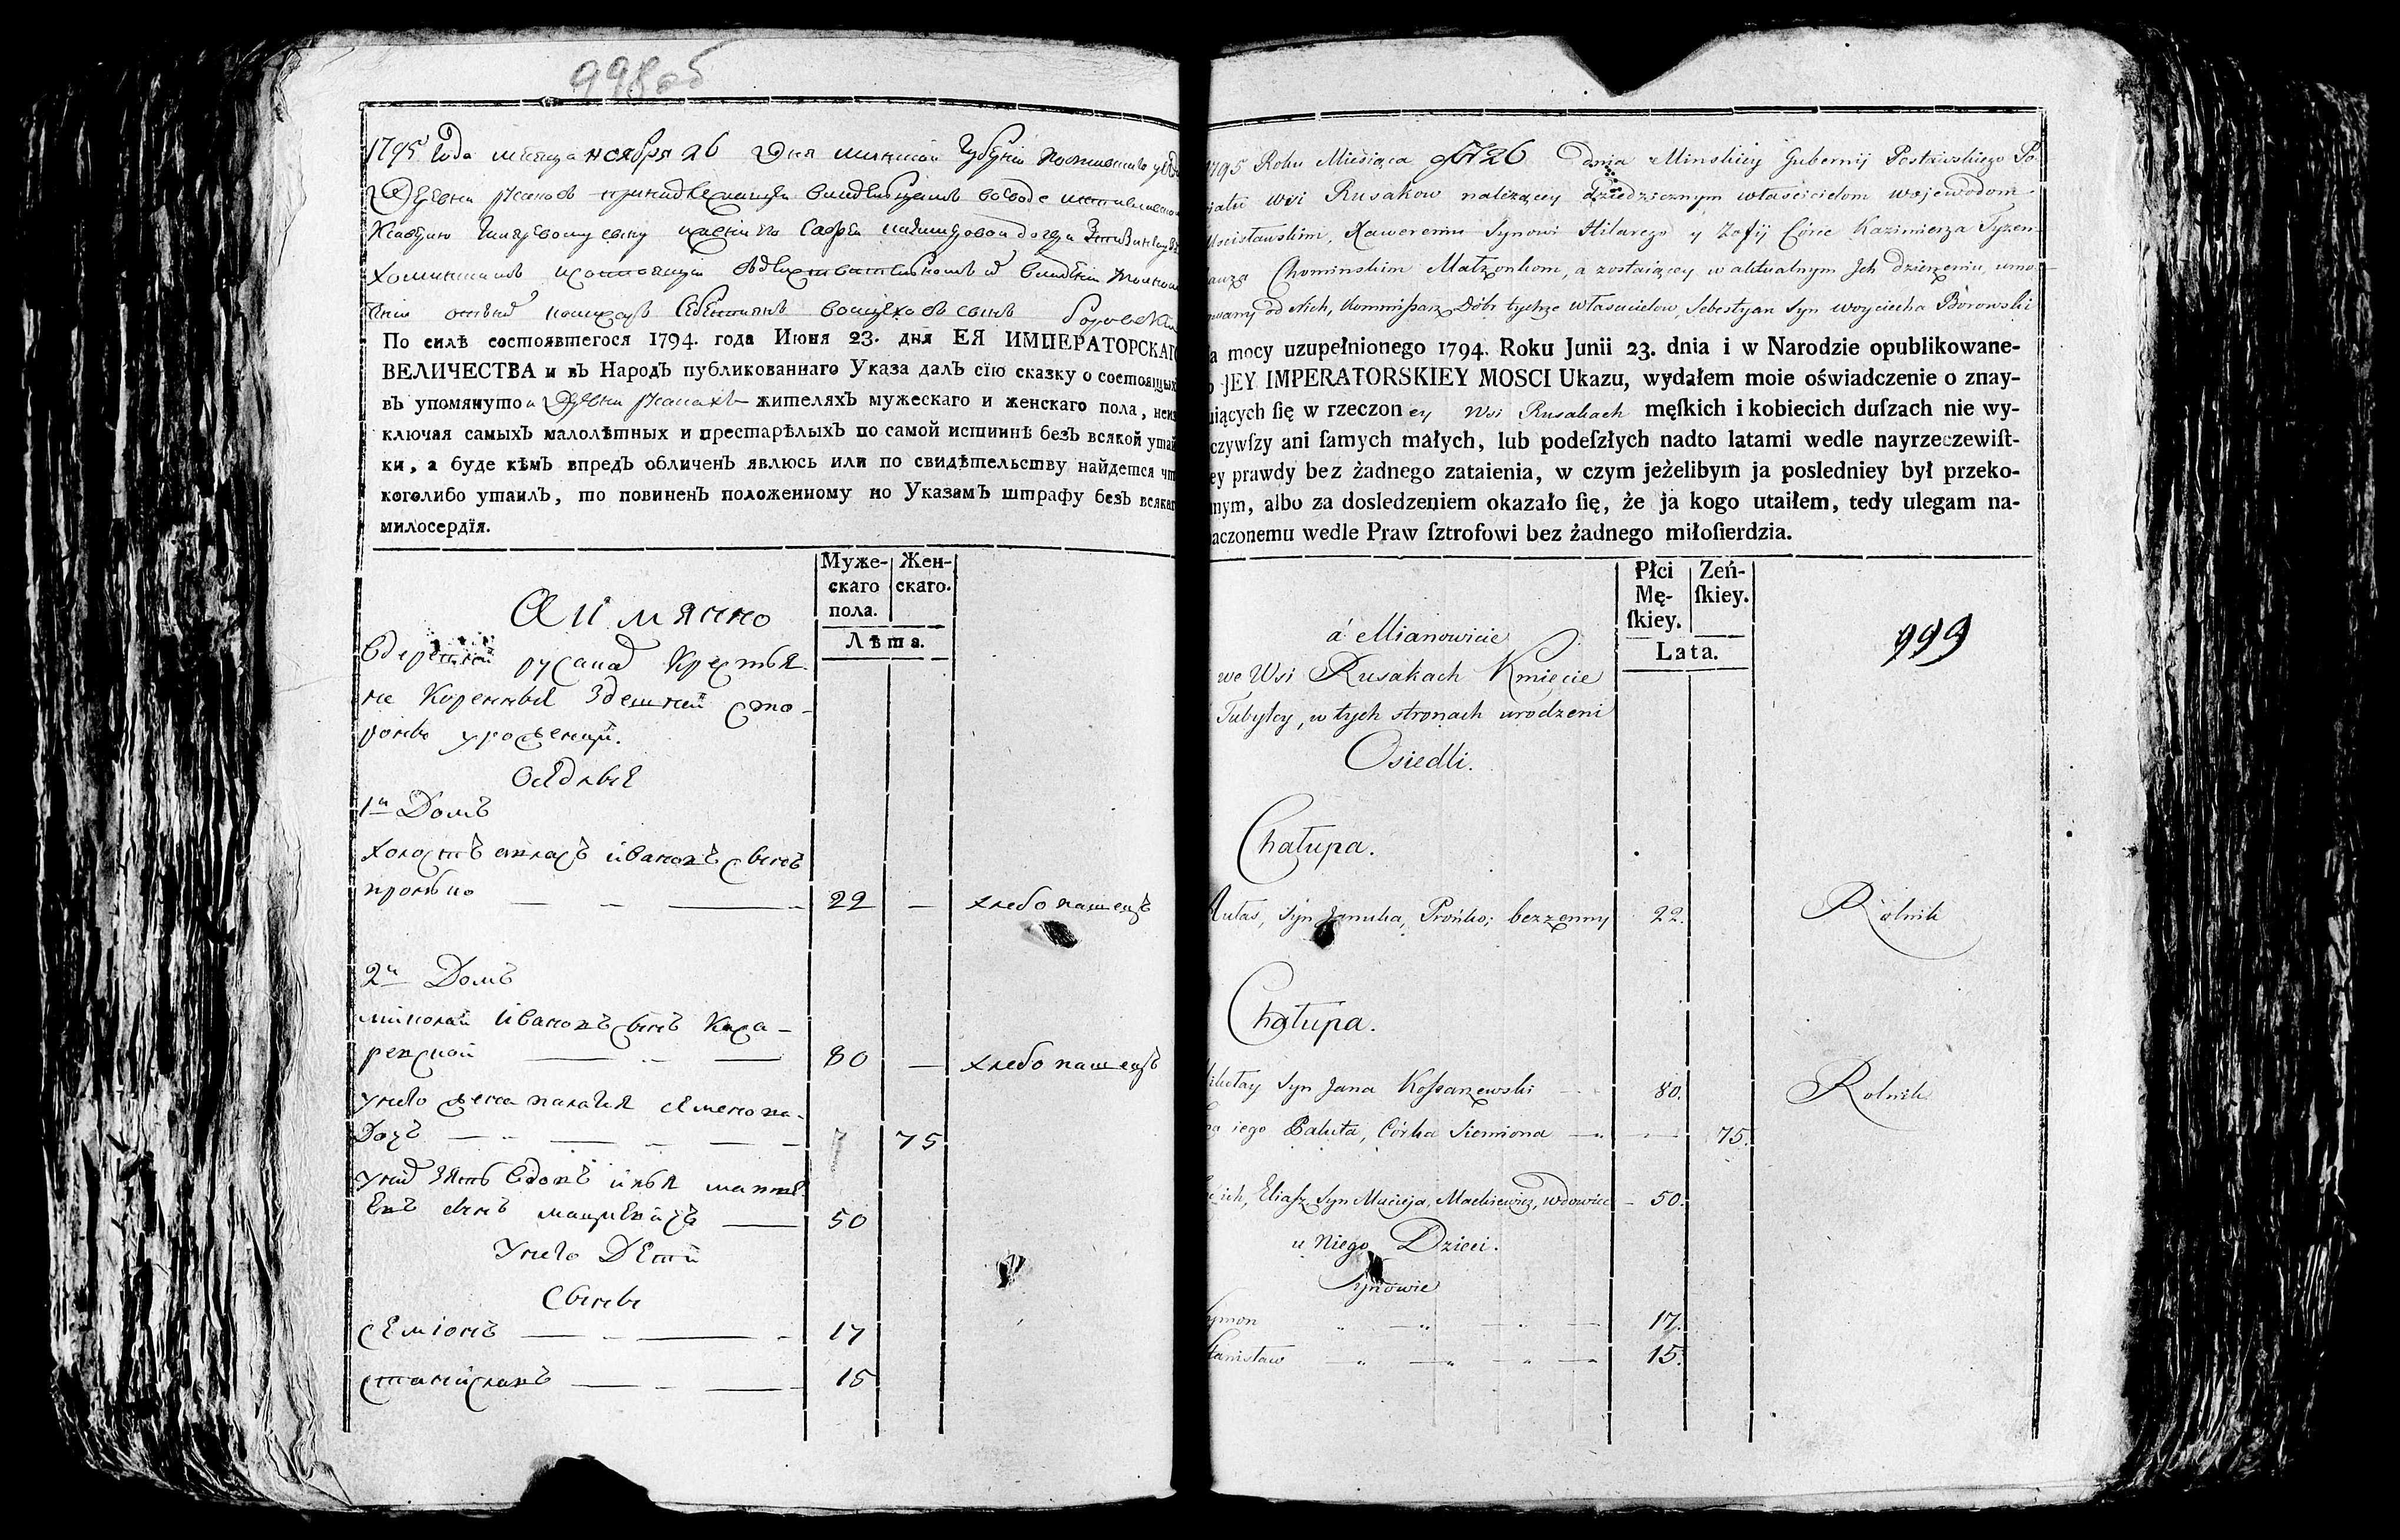 998об
1795 Года месяца ноября 26 Дня минской Губернии
Деревни Русаков
Сафии
Хоминским
Себестиян Войцехов сын Боровский
По силѣ состоявшегося 1794. года Июня 23. дня ЕЯ ИМПЕРАТОРСКАГО
ВЕЛИЧЕСТВА и въ Народъ публикованнаго Указа далъ сїю сказку о состоящихъ
въ упомянутои Деревни Русаках жителяхъ мужескаго и женскаго пола, неис
ключая самыхъ малолѣтных и престарѣлыхъ по самой истиннѣ безъ всякой утай
ки, а буде кѣмъ впредъ обличенъ явлюсь или по свидѣтельству найдется что
коголибо утаилъ, то повиненъ положенному по Указамъ штрафу безъ всякаго
милосердїя.
Муже-
скаго
пола.
Жен-
скаго.
Лѣта.
А имянно
в деревни русаках Крестья-
не Коренныя Здешней сто-
роны уроженцы.
Оседлыя
1й Домъ
холостъ анласъ ивановъ сынъ
пронько 22 — хлебопашецъ
2й Домъ
миколай Ивановъ сынъ Каса-
ревской 80 — хлебопашецъ
у него жена палагея семенова
Дочь 75
у них зять вдовъ илья матве
евъ сынъ мацкевичъ 50
У него Дети
Сыны
семионъ 17
станиславъ 15
1795 Roku Miesiąca 9br 26 Dnia Minskiey Gubernij Postawskiego Po
iatu wsi Rusakow należącey dziedzicznym właścicielom wojewodom
Mscisławskim, Xaweremu Synowi Hilarego y Zofij Córce Kazimierza Tyzen
hauza Chominskim Małżonkom, a zostaiącey w aktualnym Jch dzierżeniu, umo
cowany od Nich, Kommissarz Dóbr tychże właścicielow, Sebestyan Syn Woyciecha Borowski
a mocy uzupełnionego 1794. Roku Junii 23. dnia i w Narodzie opublikowane-
o JEY IMPERATORSKIEY MOSCI Ukazu, wydałem moie oświadczenie o znay-
uiących ſię w rzeczoney Wsi Rusakach męſkich i kobiecich duſzach nie wy-
czywſzy ani ſamych małych, lub podeſzłych nadto latami wedle nayrzeczewiſt-
ey prawdy bez żadnego zataienia, w czym jeżelibym ja posledniey był przeko-
nym, albo za dosledzeniem okazało ſię, że ja kogo utaiłem, tedy ulegam na-
aczonemu wedle Praw ſztrofowi bez żadnego miłoſierdzia.
Płci
Mę-
ſkiey.
Zeń-
ſkiey.
Lata.
999
á Mianowicie
we Wsi Rusakach Kmięcie
Tubylcy, w tych stronach urodzeni
Osiedli.
Chałupa.
Aułas, Syn Januka, Prońko; bezżenny 22. Rolnik
Chałupa.
Mikołay Syn Jana Koſsarzewski 80. Rolnik
na iego Paluta, Córka Siemiona 75.
ich, Eliaſz Syn Macieja, Mackiewicz, Wdowiec 50.
u Niego Dzieci.
Synowie
Symon 17.
Stanisław 15.